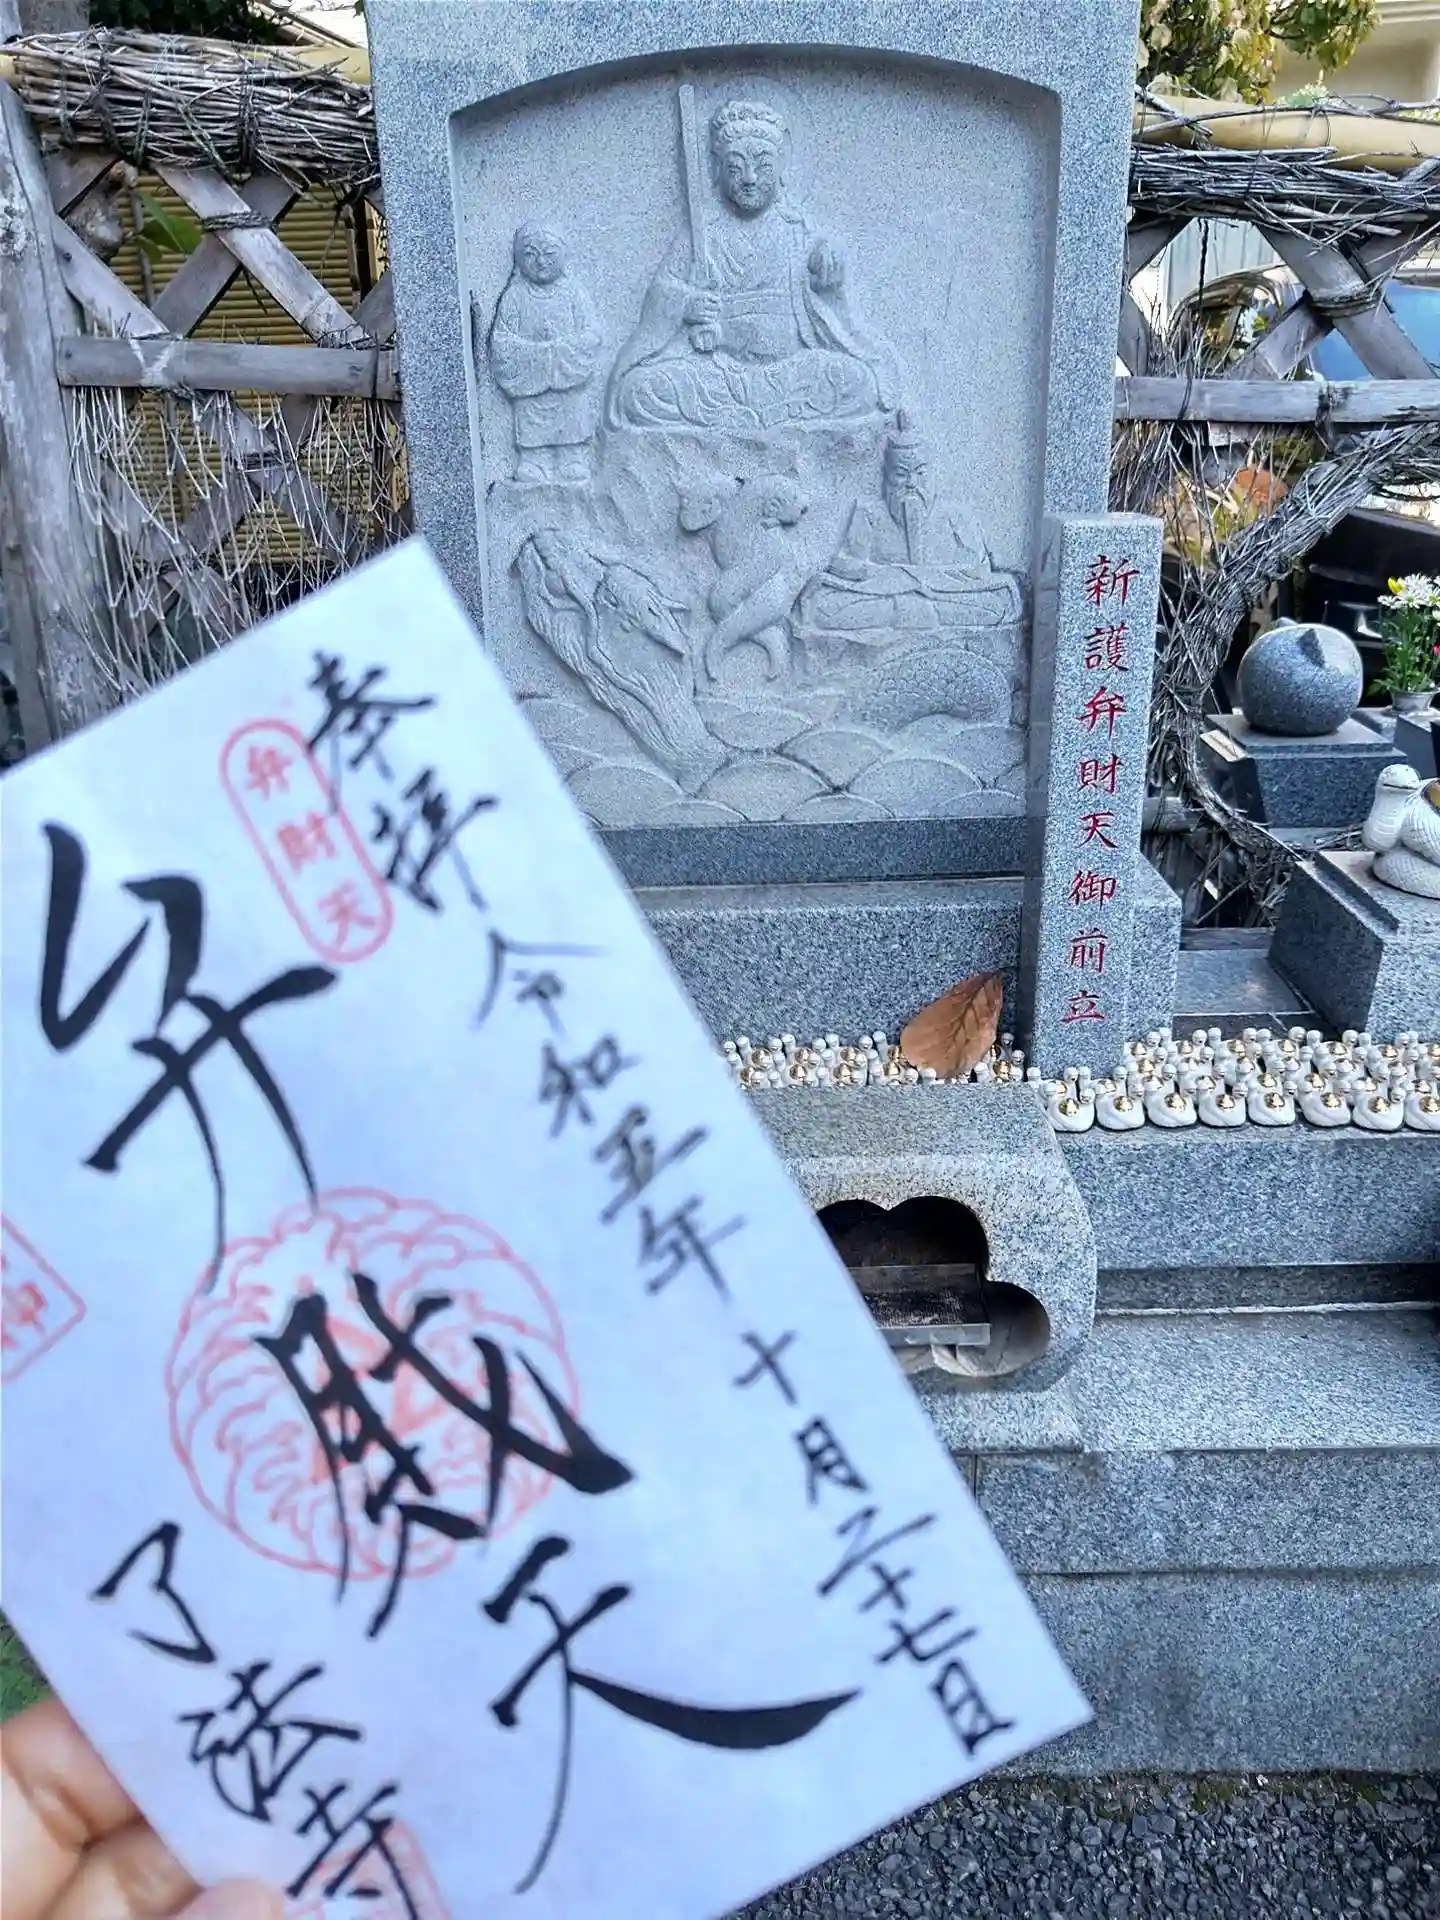 奉拝
令和五年十月二十七日
弁財天
弁財天
了法寺
新護弁財天御前立